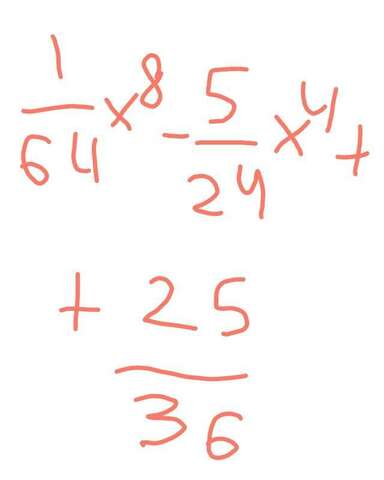 1/64 x^8 - 5/24 x^4 +
+ 25/36